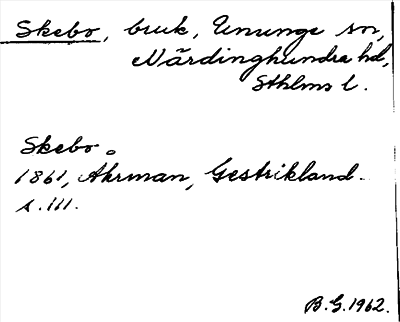 Skebo, bruk, Ununge sn,
Närdinghundra hd,
Sthlms l.
Skebo.
1861, Åhrman, Gestrikland.
s. 111.
B.G. 1962.